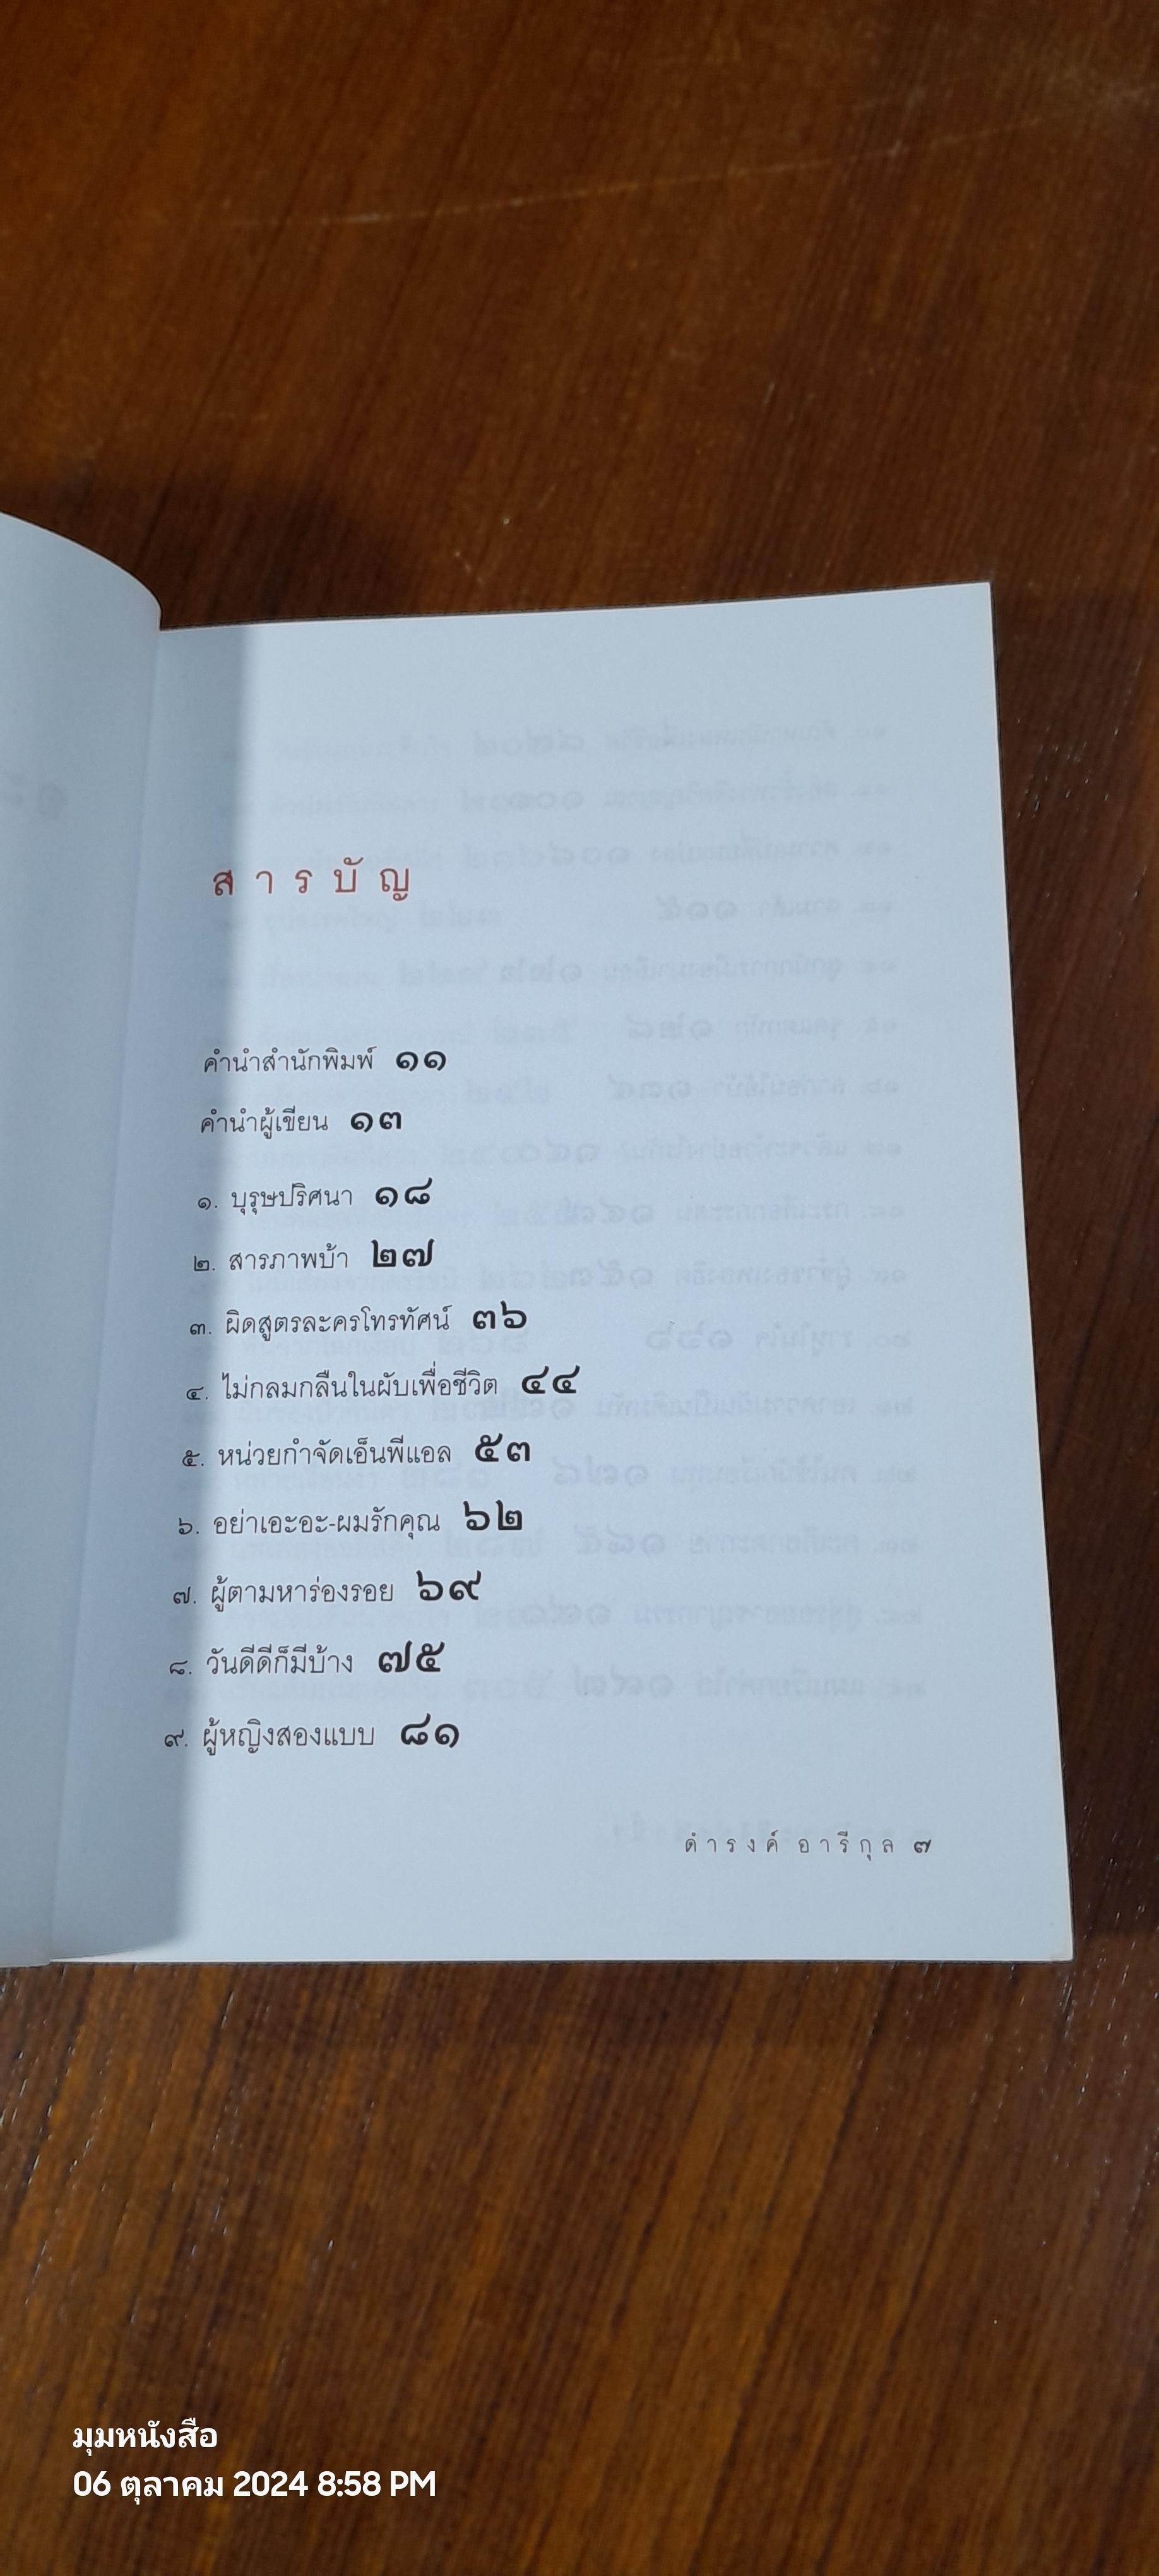 สารบัญ
คำนำสำนักพิมพ์ ๑๑
คำนำผู้เขียน ๑๓
๑. บุรุษปริศนา ๑๘
๒. สารภาพบ้า ๒๗
๓. ผิดสูตรละครโทรทัศน์ ๓๖
๔. ไม่กลมกลืนในผับเพื่อชีวิต ๔๔
๕. หน่วยกำจัดเอ็นพีแอล ๕๓
๖. อย่าเอะอะ-ผมรักคุณ ๖๒
๗. ผู้ตามหาร่องรอย ๖๙
๘. วันดีดีก็มีบ้าง ๗๕
๙. ผู้หญิงสองแบบ ๘๑
ดำรงค์ อารีกุล ๗
มุมหนังสือ
06 ตุลาคม 2024 8:58 PM